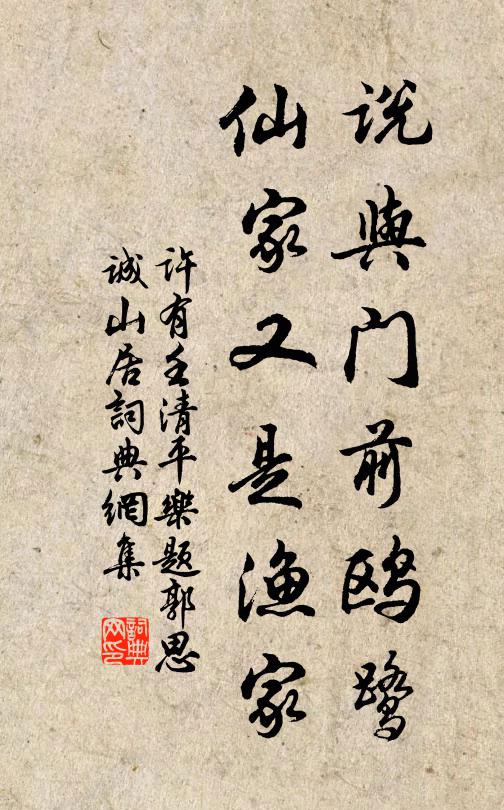 说與门前鸥鹭
仙家又是渔家
许有壬清平樂题郭思
诚山居詞典網集
詞典网印